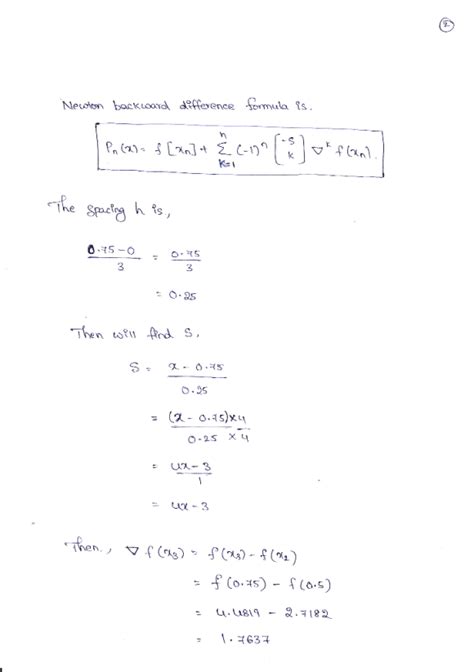 2
Newton backward difference formula is.
Pn(x) = f[xn] + Σ (-1)^n [-s k] ∇^k f(xn).
n
k=1
The spacing h is,
0.75-0 / 3 = 0.75 / 3
= 0.25
Then will find S,
S = x - 0.75 / 0.25
= (x - 0.75)×4 / 0.25 ×4
= 4x-3 / 1
= 4x-3
Then, ∇f(x3) = f(x3) - f(x2)
= f(0.75) - f(0.5)
= 4.4819 - 2.7182
= 1.7637